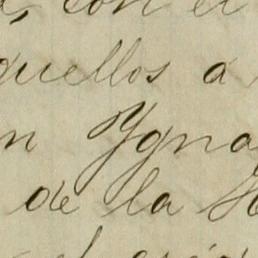 , con el
quellos a
n Ygna
de la H